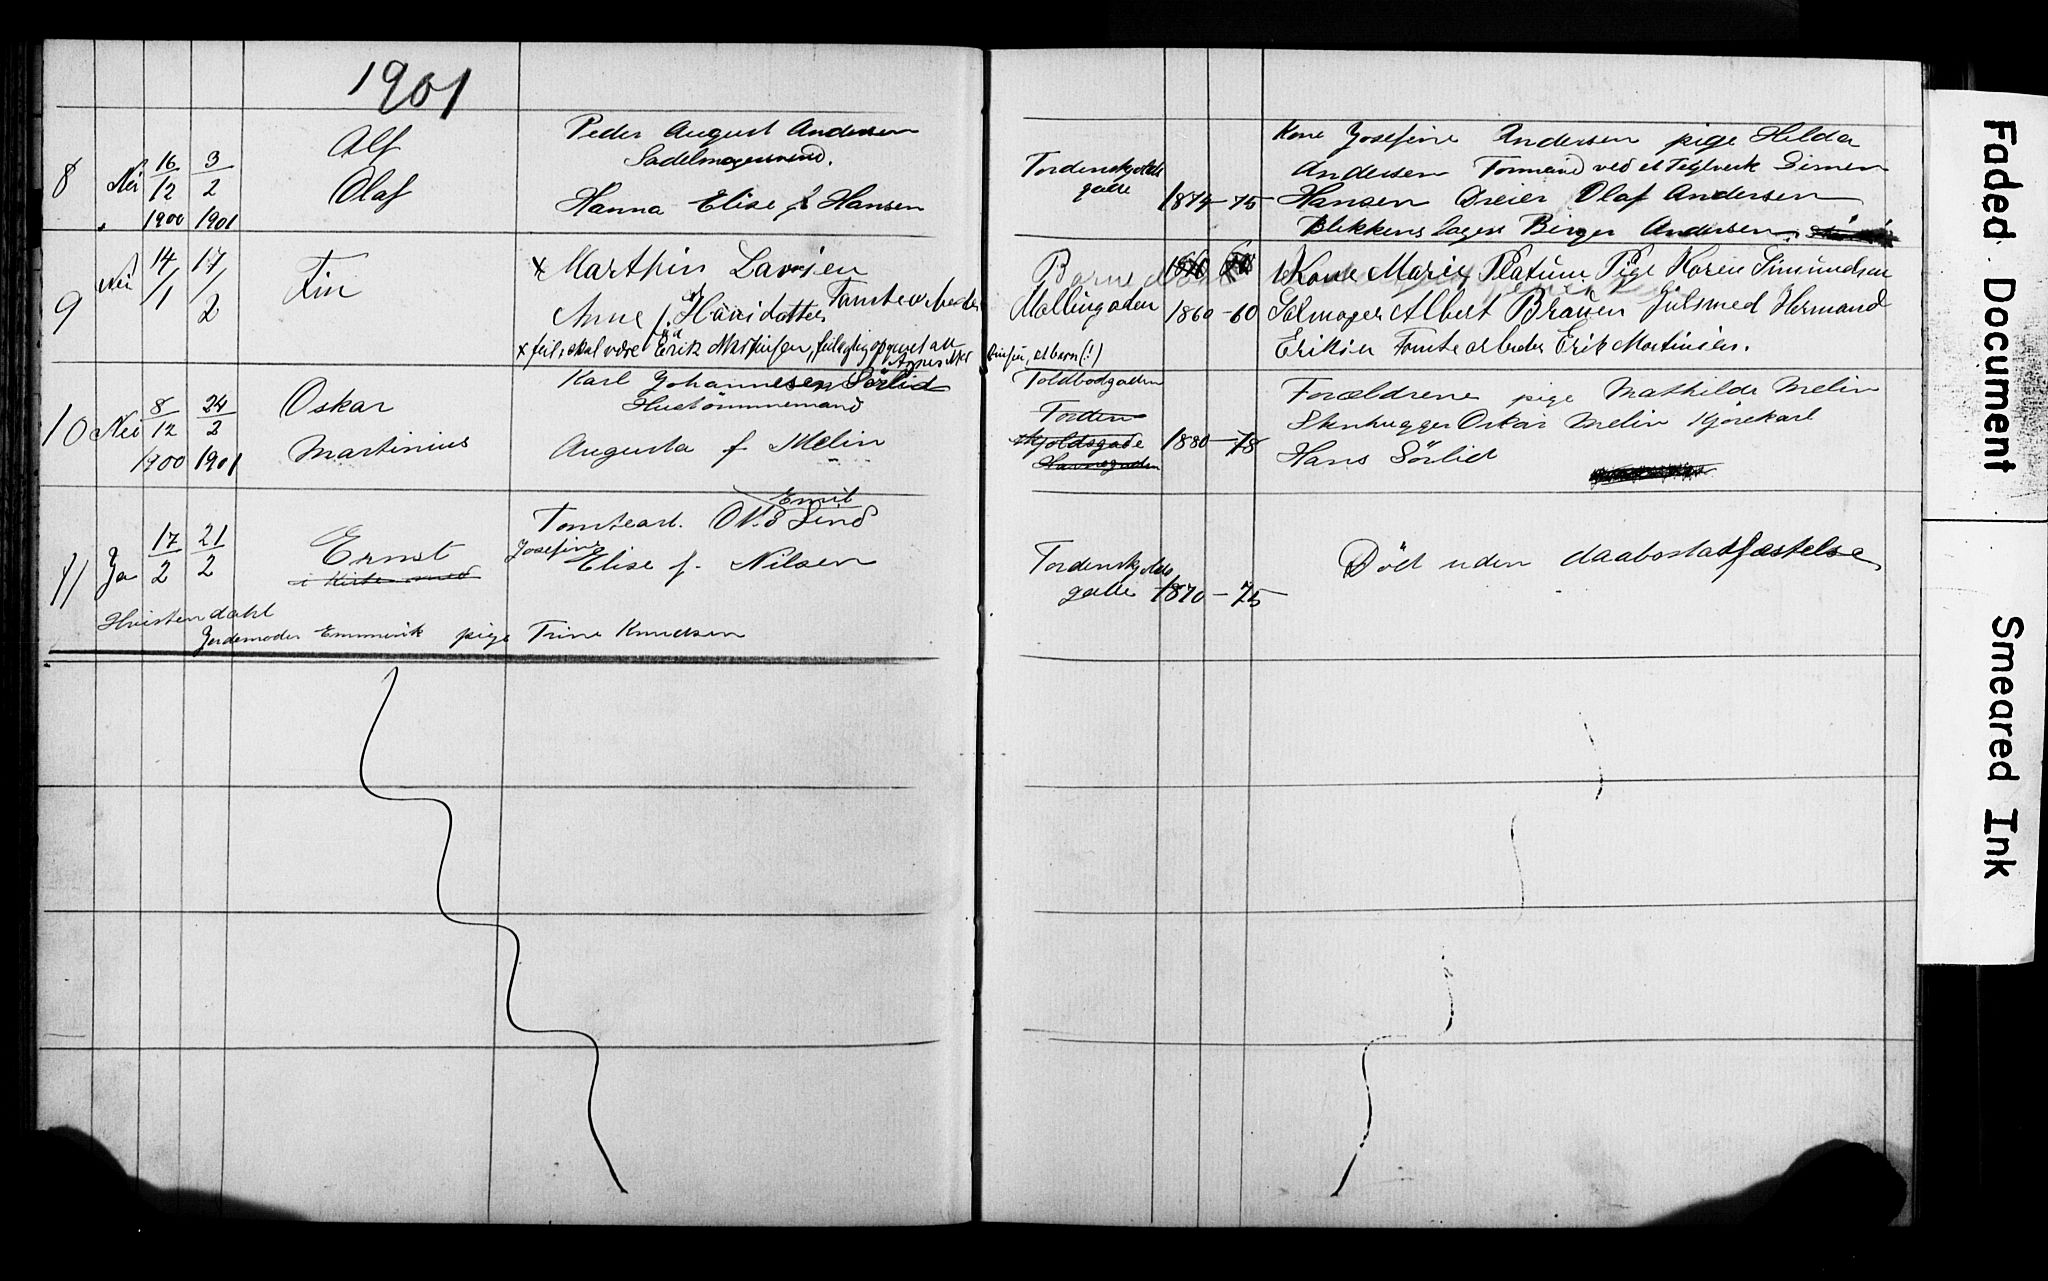 1901
8 Nei 16/12 1900 3/2 1901
Alf
Olaf
Peder August Andersen
Sadelmagersvend.
Hanna Elise f Hansen
Tordenskjolds
gade
1874-75
Kone Josefine Andersen pige Hilda
Andersen Formand ved et Teglverk Simen
Hansen Dreier Olaf Andersen
Blikkenslager Birger Andersen.
9 Nei 14/1 17/2
Fin
x Marthin Larsen
Tomtearbeider
Anne f. Hansdatter
x feil, skal være Erik Martinsen, feilagtig opgivet av
Agnes Mar
tinsen, et barn (!)
Møllingaden
1860-60
Kone Marie Platum Pige Karen Simundsen
Salmager Albert Braaen Gulsmed Hermand
Eriksen Tomtearbeider Erik Martinsen.
10 Nei 8/12 1900 24/2 1901
Oskar
Martinius
Karl Johannesen Sørlid
Hustømmermand
Augusta f Melin
Toldbodgaden
Torden
skjoldsgade
Havnegaden
1880-78
Forældrene pige Mathilde Melin
Stenhugger Oskar Melin Kjørekarl
Hans Sørlid
11 Ja 17/2 21/2
Ernst
Emil
Tomtearb. O. Lind
Josefine
Elise f. Nilsen
Tordenskjolds
gade 1870-75
Død uden daabsstadfæstelse
Hvistendahl
Jordemoder Emmerik pige Trine Knudsen
Faded Document
Smeared Ink